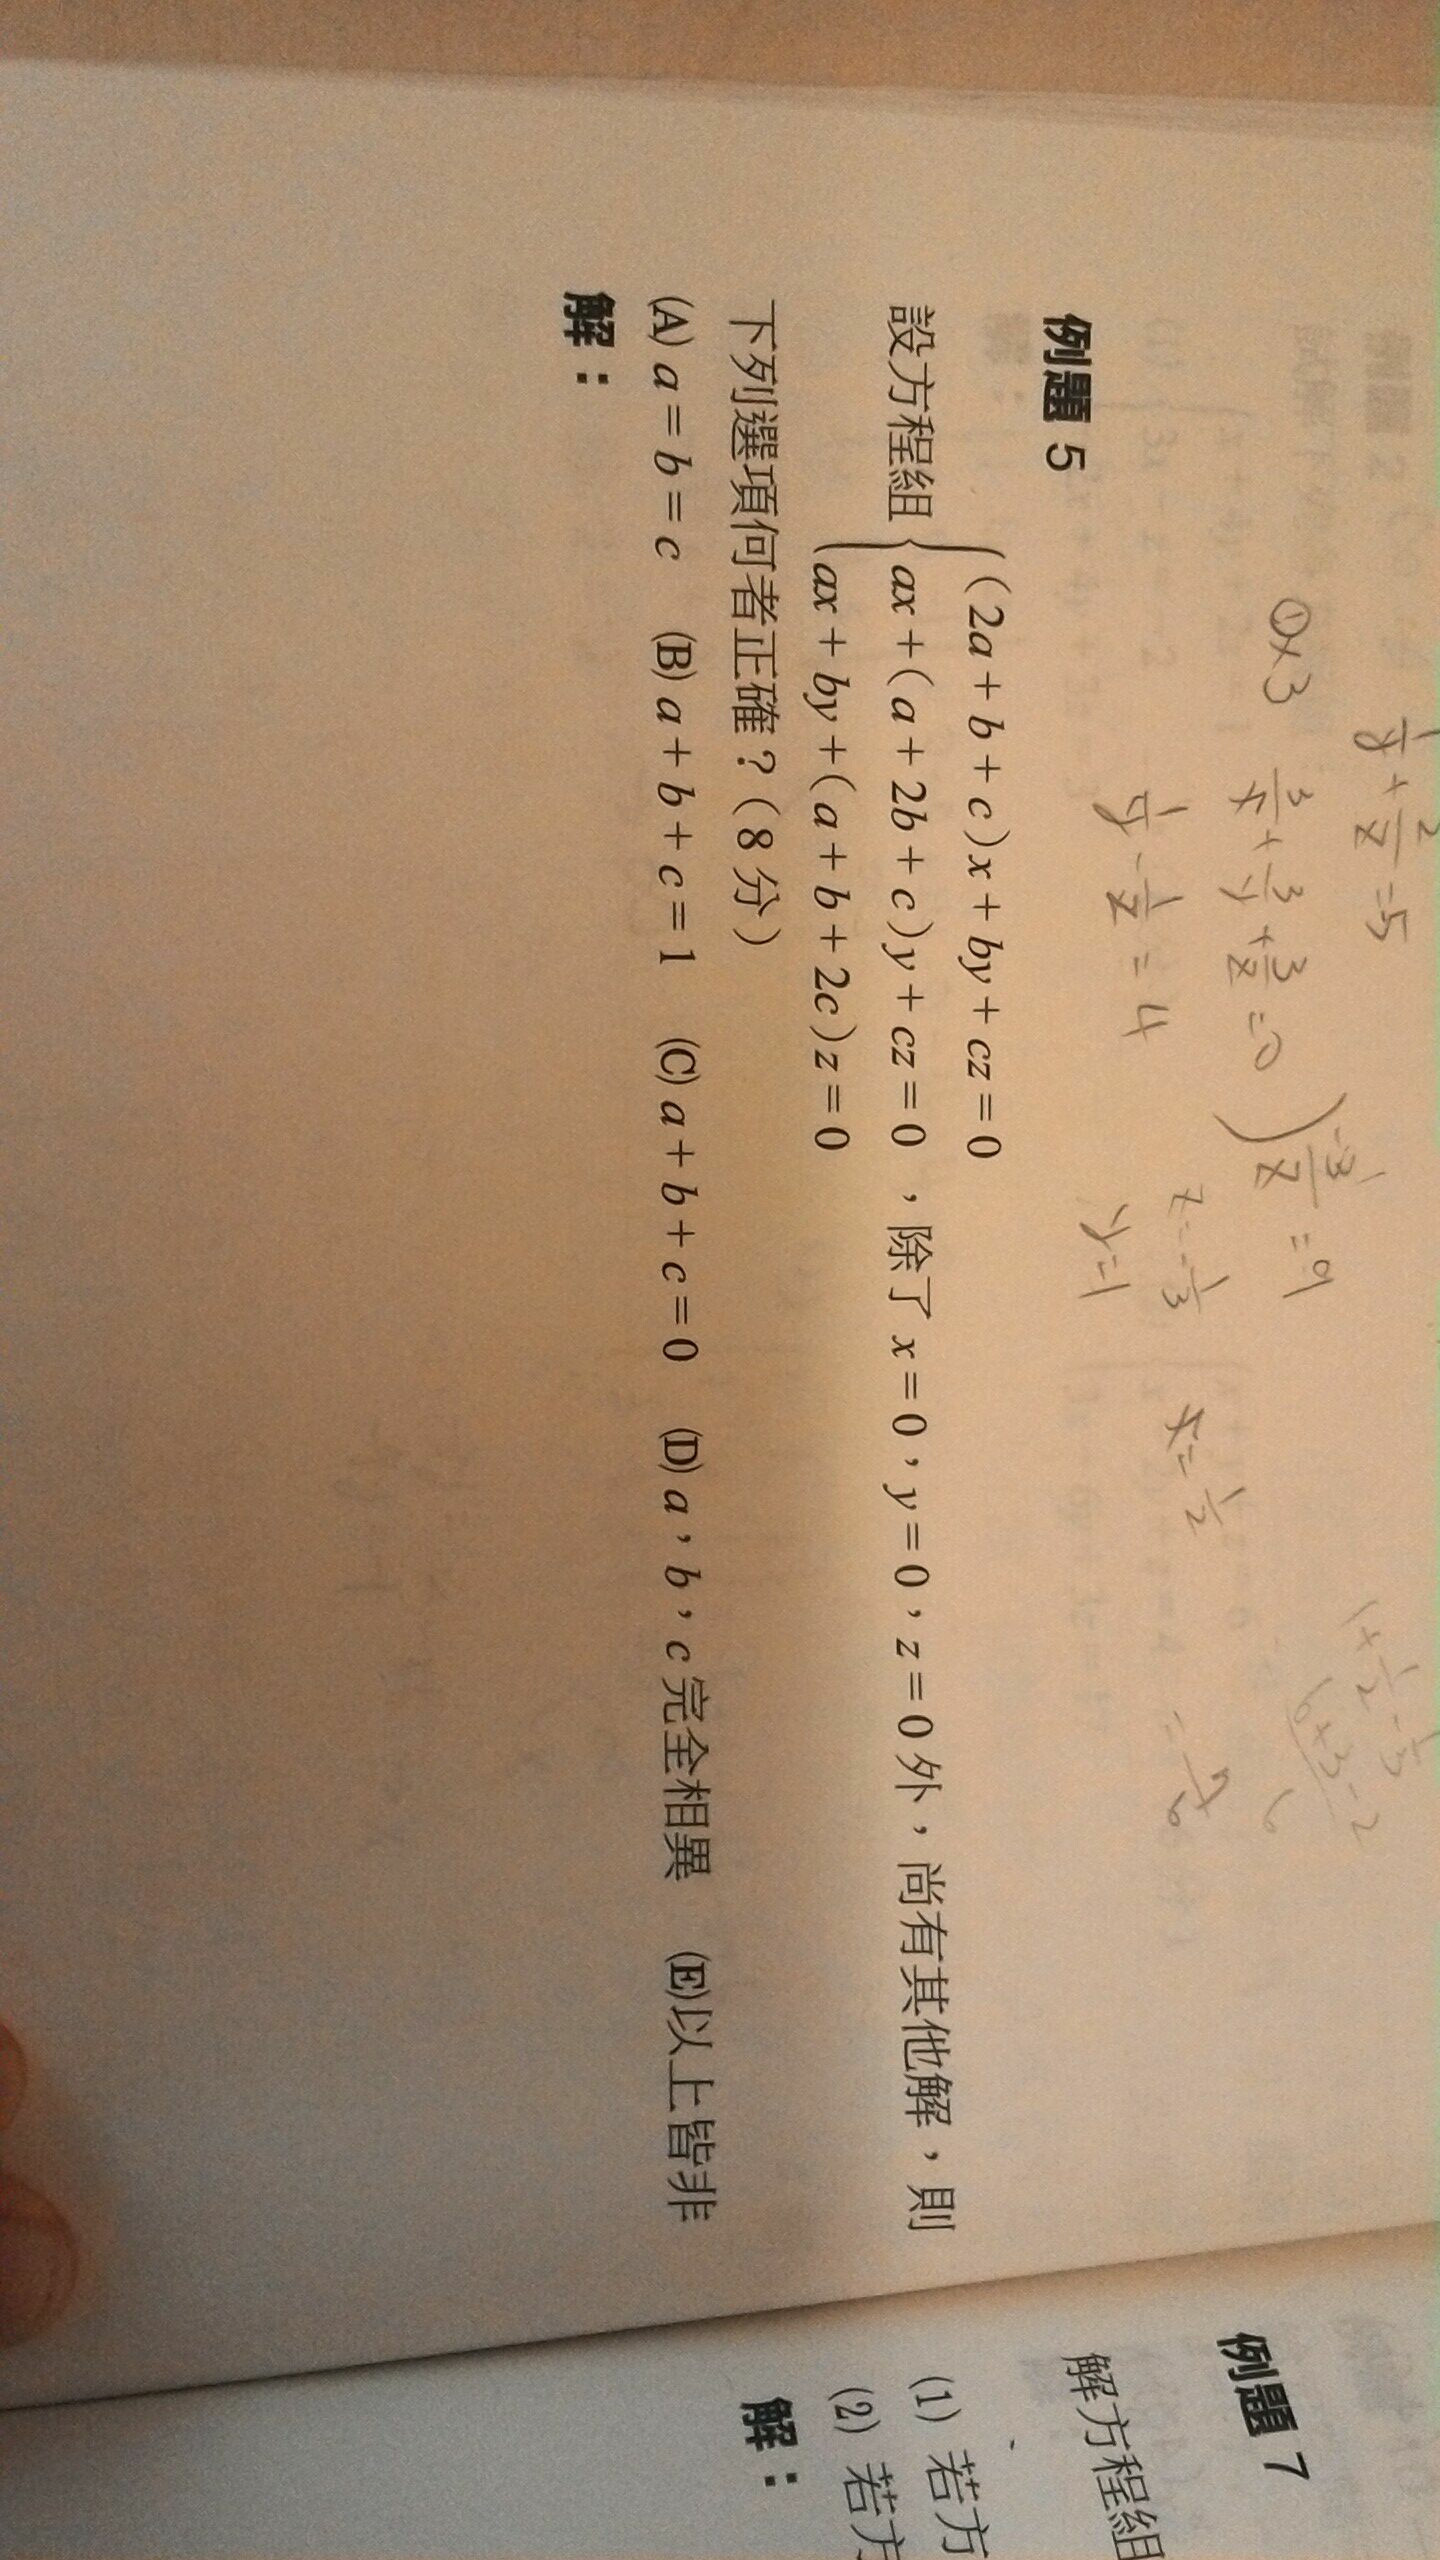 1/y + 2/z = 5
①×3 3/x + 3/y + 3/z = 0
1/y - 1/z = 4
-3/z = 9
z = -1/3
y = 1
x = 1/2
1 + 1/2 - 1/3
6+3-2
6
= 7/6
例題 5
設方程組{(2a+b+c)x+by+cz=0
ax+(a+2b+c)y+cz=0，除了 x=0，y=0，z=0外，尚有其他解，則
ax+by+(a+b+2c)z=0
下列選項何者正確？(8分)
(A) a=b=c (B) a+b+c=1 (C) a+b+c=0 (D) a，b，c完全相異 (E)以上皆非
解：
例題 7
解方程組
(1) 若方
(2) 若方
解：